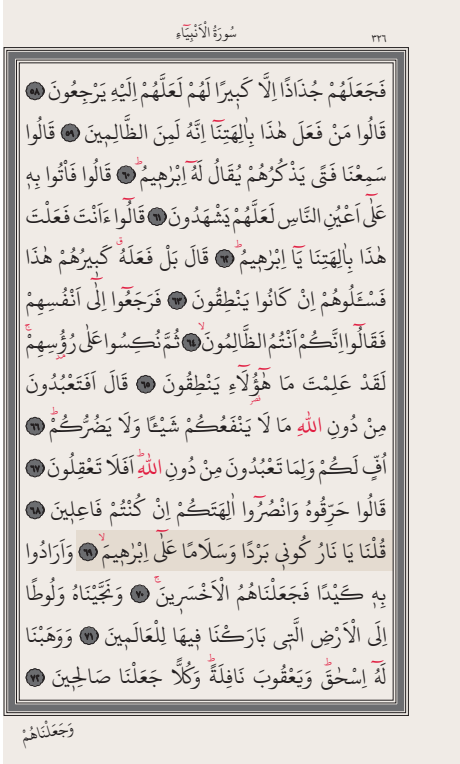 سُورَةُ الْاَنْبِيَٓاءِ
٣٢٦
فَجَعَلَهُمْ جُذَاذًا اِلَّا كَبٖيرًا لَهُمْ لَعَلَّهُمْ اِلَيْهِ يَرْجِعُونَ ٥٨
قَالُوا مَنْ فَعَلَ هٰذَا بِاٰلِهَتِنَٓا اِنَّهُ لَمِنَ الظَّالِمٖينَ ٥٩ قَالُوا
سَمِعْنَا فَتًى يَذْكُرُهُمْ يُقَالُ لَهُٓ اِبْرٰهٖيمُۜ ٦٠ قَالُوا فَأْتُوا بِهٖ
عَلٰٓى اَعْيُنِ النَّاسِ لَعَلَّهُمْ يَشْهَدُونَ ٦١ قَالُٓوا ءَاَنْتَ فَعَلْتَ
هٰذَا بِاٰلِهَتِنَا يَٓا اِبْرٰهٖيمُۜ ٦٢ قَالَ بَلْ فَعَلَهُۗ كَبٖيرُهُمْ هٰذَا
فَسْـَٔلُوهُمْ اِنْ كَانُوا يَنْطِقُونَ ٦٣ فَرَجَعُٓوا اِلٰٓى اَنْفُسِهِمْ
فَقَالُٓوا اِنَّكُمْ اَنْتُمُ الظَّالِمُونَۙ ٦٤ ثُمَّ نُكِسُوا عَلٰى رُؤُ۫سِهِمْۚ
لَقَدْ عَلِمْتَ مَا هٰٓؤُ۬لَٓاءِ يَنْطِقُونَ ٦٥ قَالَ اَفَتَعْبُدُونَ
مِنْ دُونِ اللّٰهِ مَا لَا يَنْفَعُكُمْ شَيْـًٔا وَلَا يَضُرُّكُمْۜ ٦٦
اُفٍّ لَكُمْ وَلِمَا تَعْبُدُونَ مِنْ دُونِ اللّٰهِۜ اَفَلَا تَعْقِلُونَ ٦٧
قَالُوا حَرِّقُوهُ وَانْصُرُٓوا اٰلِهَتَكُمْ اِنْ كُنْتُمْ فَاعِلٖينَ ٦٨
قُلْنَا يَا نَارُ كُونٖى بَرْدًا وَسَلَامًا عَلٰٓى اِبْرٰهٖيمَۙ ٦٩ وَاَرَادُوا
بِهٖ كَيْدًا فَجَعَلْنَاهُمُ الْاَخْسَرٖينَۚ ٧٠ وَنَجَّيْنَاهُ وَلُوطًا
اِلَى الْاَرْضِ الَّتٖى بَارَكْنَا فٖيهَا لِلْعَالَمٖينَ ٧١ وَوَهَبْنَا
لَهُٓ اِسْحٰقَۜ وَيَعْقُوبَ نَافِلَةًۜ وَكُلًّا جَعَلْنَا صَالِحٖينَ ٧٢
وَجَعَلْنَاهُمْ